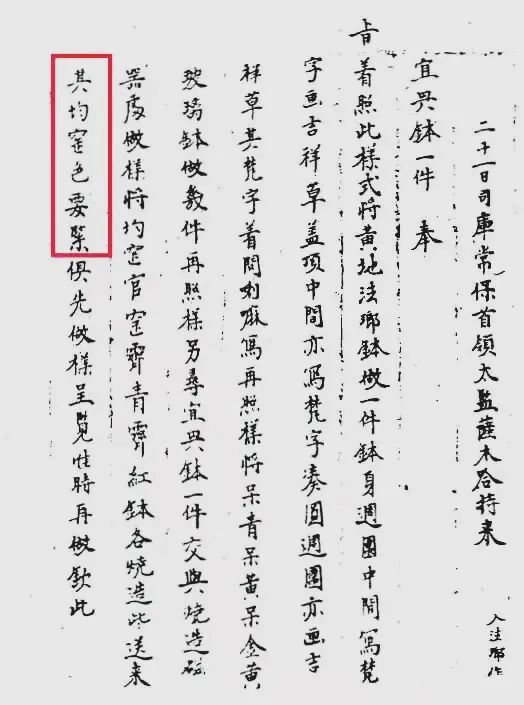 二十一日司庫常保首領太監薩木哈持来
入法瑯作
宜興鉢一件奉
旨着照此樣式将黄地法瑯鉢做一件鉢身週圍中間寫梵
字画吉祥草盖頂中間亦寫梵字湊圓週圍亦画吉
祥草其梵字着問喇嘛寫再照樣将呆青呆黄呆金黄
玻璃鉢做数件再照樣另尋宜興鉢一件交與燒造磁
器處做樣将均窑官窑霽青霽紅鉢各燒造此送来
其均窑色要緊俱先做樣呈覽准時再做欽此